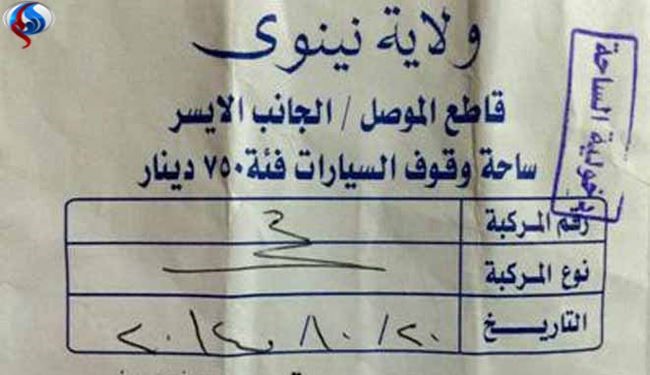 ولاية نينوى
قاطع الموصل / الجانب الايسر
ساحة وقوف السيارات فئة ٧٥٠ دينار
دخولية الساحة
رقم المركبة
نوع المركبة
التاريخ ٢٠/١٠/٢٠١٤